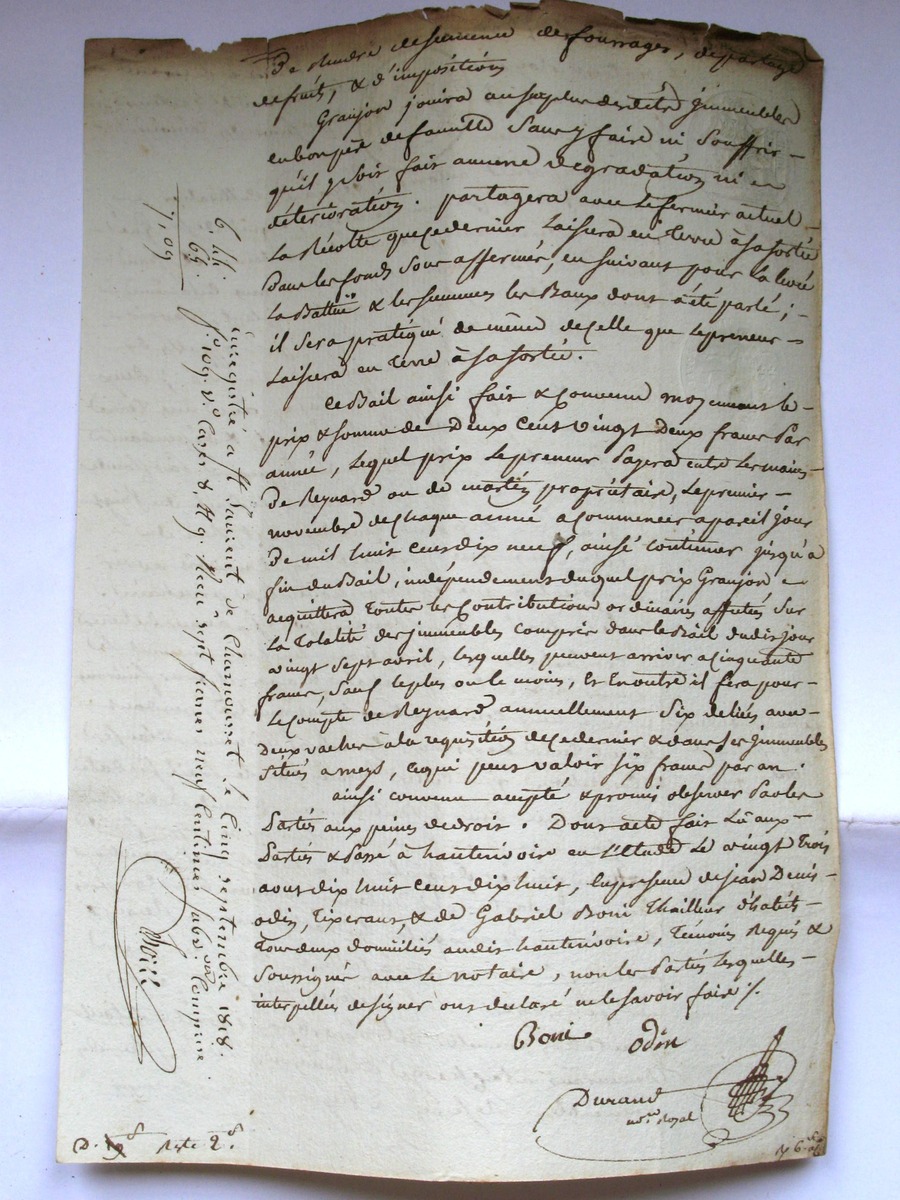 de semence de fourrages, de partage
de fruits, & d'impositions
Granjon jouira au surplus desdits jmmeubles
en bon père de famille Sans y faire ni Souffrir
qu'il y soit fait aucune degradation ni
détérioration. partagera avec le fermier actuel
La Récolte que ce dernier Laissera en Terre à sa sortie
Dans les fonds Sous affermés, en suivant pour la levée
La Battue & les semences les Baux dont a été parlé ;
il Sera pratiqué de même de celle que le preneur
Laissera en Terre à sa sortie.
Ce Bail ainsi fait & Convenu moyennant le
prix & somme de Deux Cent vingt Deux francs Par
année, Lequel prix Le preneur Payera entre Les mains
De Reynard ou de martin propriétaire, Le premier
novembre de chaque année a commencer a pareil jour
De mil huit cent dix neuf, ainsi continuer jusqu'a
fin du Bail, indépendemment duquel prix Granjon
acquittera Toutes les Contributions ordinaires affectés Sur
La Totalité des jmmeubles compris dans le Bail dudit jour
vingt Sept avril, lesquelles peuvent arriver a Cinquante
francs, Sauf le plus ou le moins, Et En outre il fera pour
Le Compte de Reynard annuellement Six deliés avec
Deux vaches à la requisition de ce dernier & dans Ses jmmeubles
Situés a meys, ce qui peut valoir six francs par an.
ainsi convenu accepté & promis observer Par les
Parties aux peines de droit. Dont acte fait Lu aux
Parties & Passé à hauterivoire en L'Etude Le vingt Trois
aout dix huit cent dix huit, En presence de Jean Denis
odin, Tixerant, & de Gabriel Boni Thailleur d'habits
Tous deux domiciliés audit hauterivoire, Témoins Requis &
Soussignés avec Le notaire, non les Parties Lesquelles
interpellées de signer ont declaré ne le savoir faire ./.
Boni odin
Durand
no.re Royal
6. 44
65.
7, 09
Enregistré a St Laurent de Chamousset le cinq septembre 1818.
f.o 109 v.o Cases 8, & 9. Reçu sept francs neuf Centimes subv.on Comprise
D. 19 s Reste 2 s